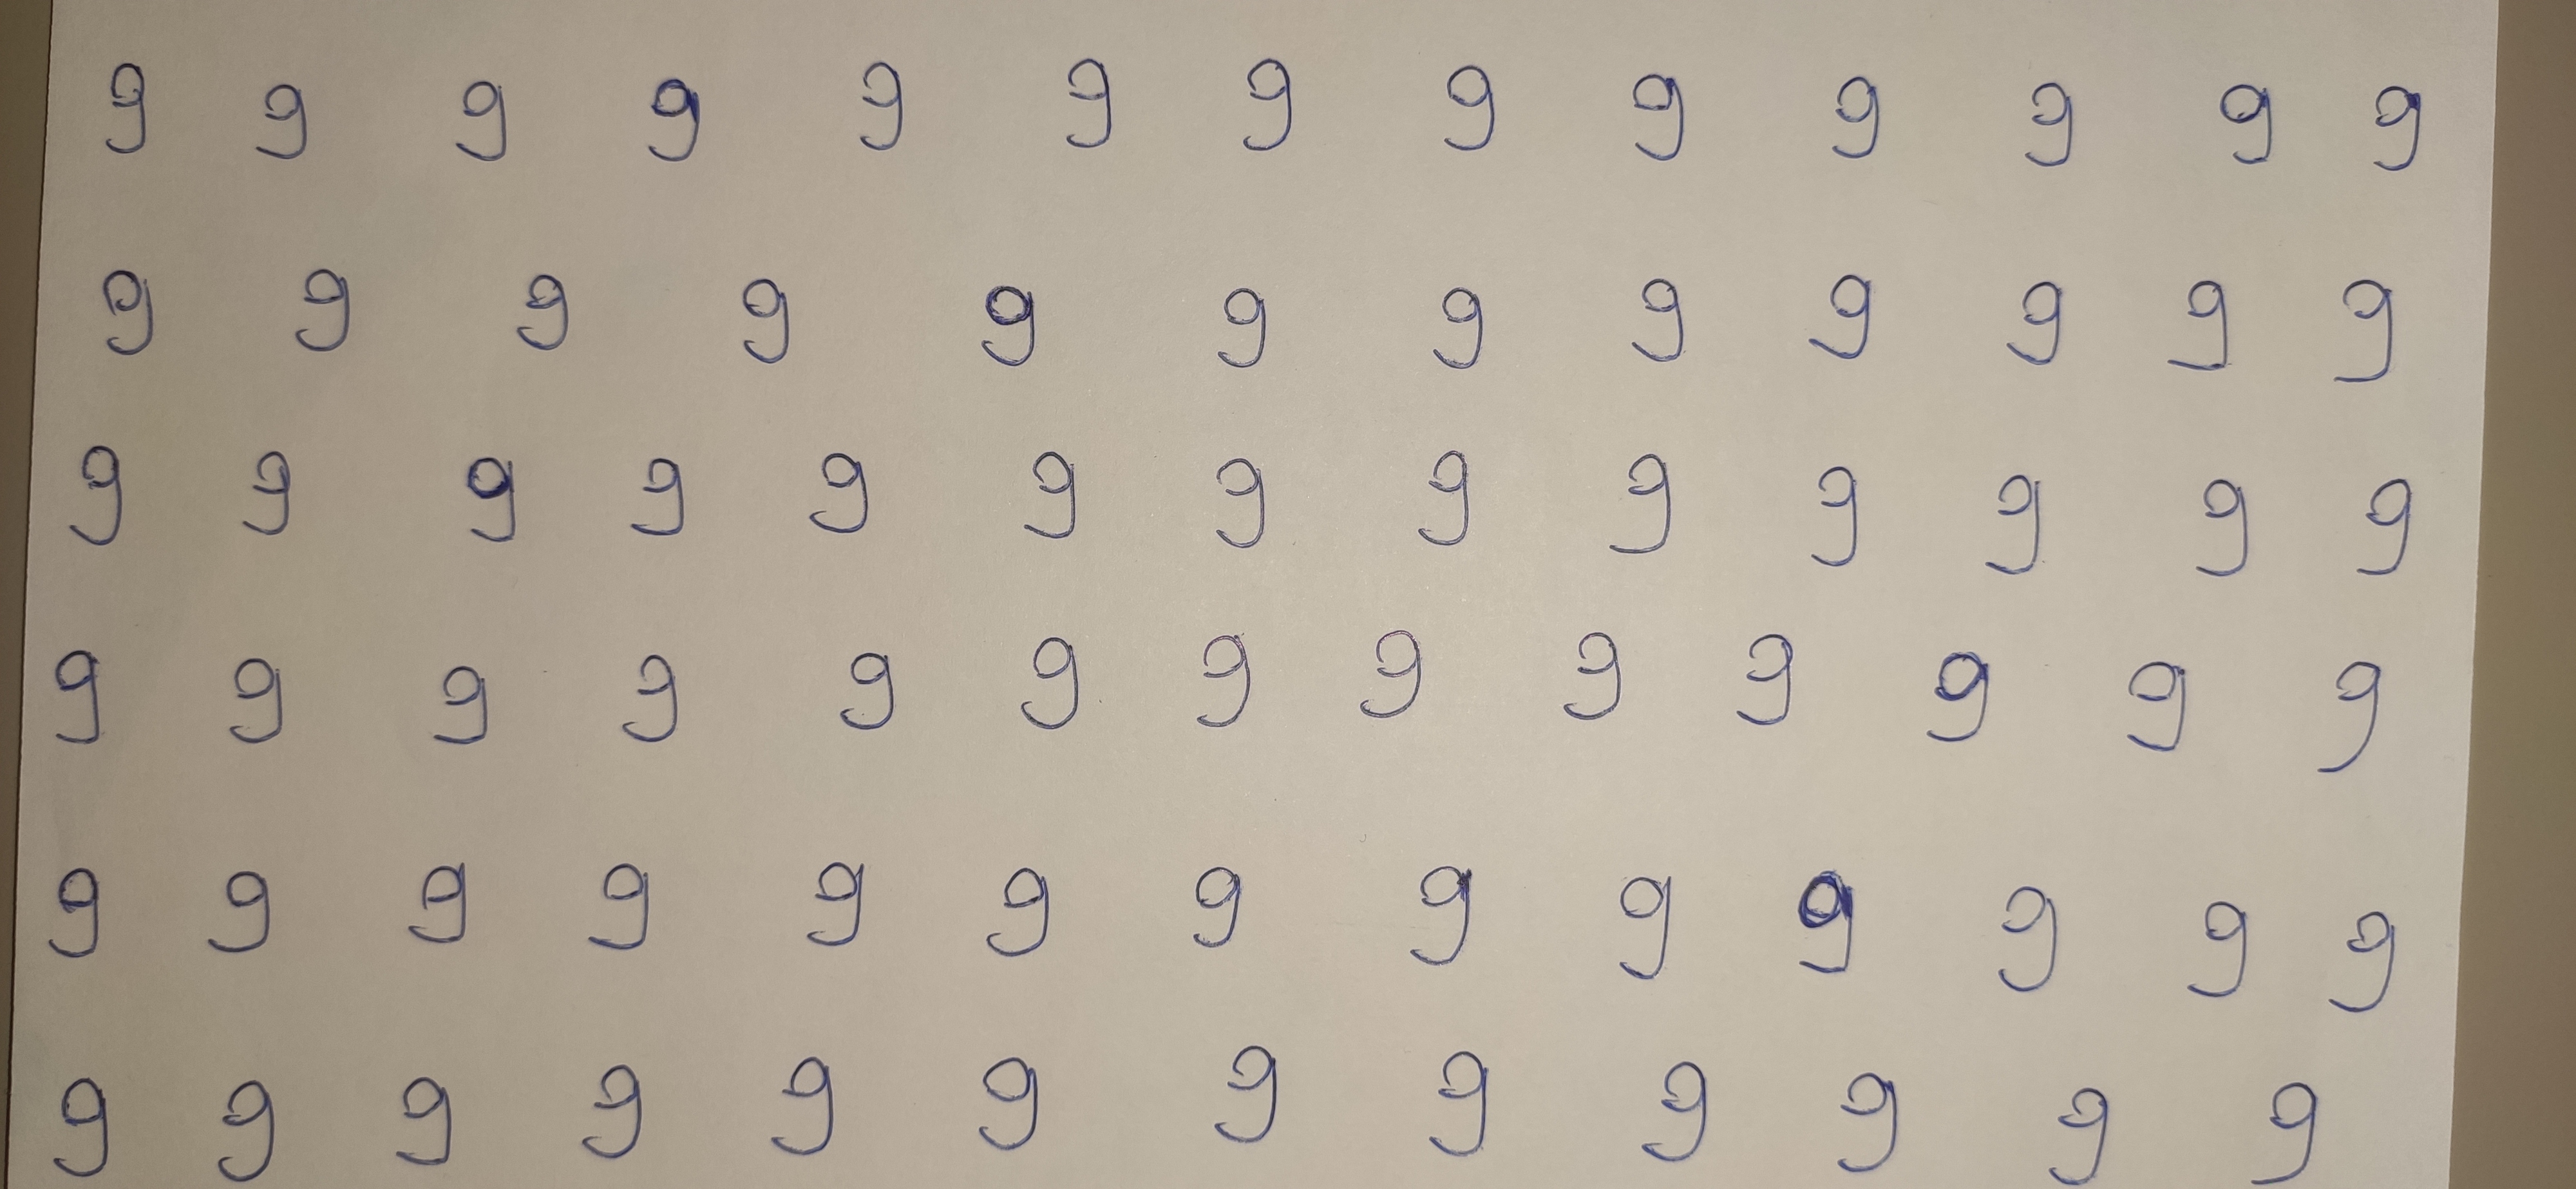 9 9 9 9 9 9 9 9 9 9 9 9 9
9 9 9 9 9 9 9 9 9 9 9 9
9 9 9 9 9 9 9 9 9 9 9 9 9
9 9 9 9 9 9 9 9 9 9 9 9 9
9 9 9 9 9 9 9 9 9 9 9 9 9
9 9 9 9 9 9 9 9 9 9 9 9